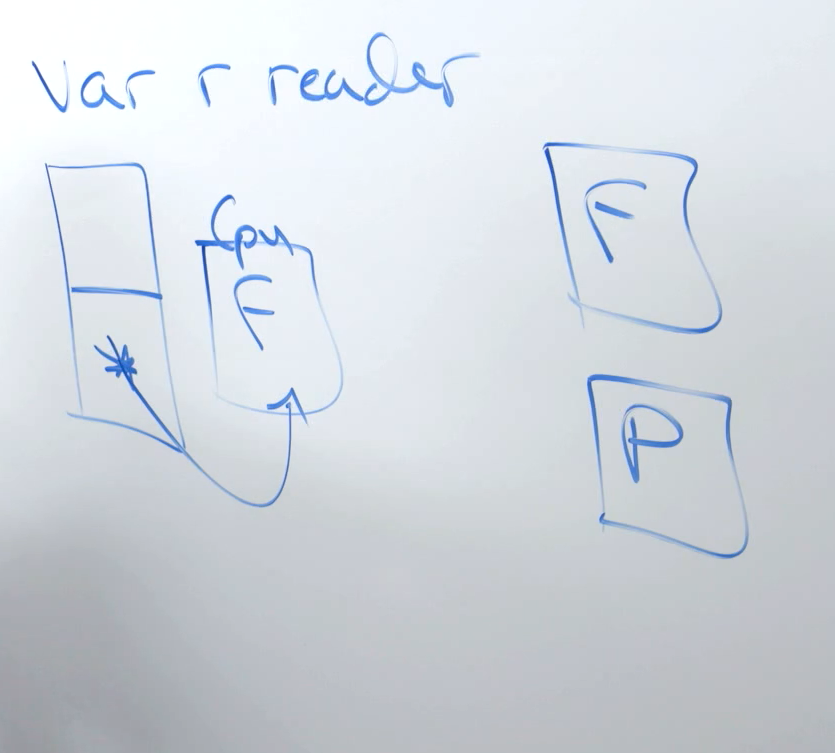 var r reader
F
Cpy
F
P